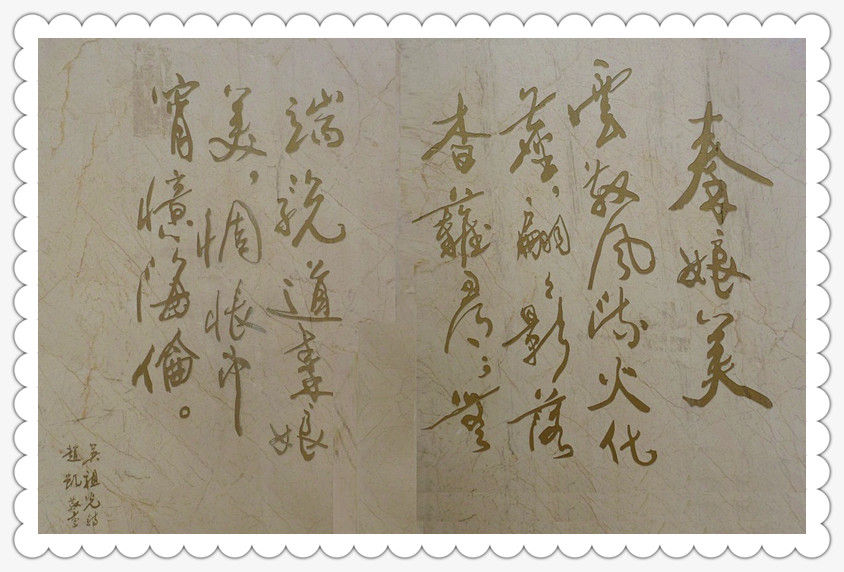 秦娘美
雲散风流火化
塵，翩翩影落
杳難尋。無
端説道秦娘
美，惆悵中
宵憶海倫。
吳祖光詩
趙凱敬書